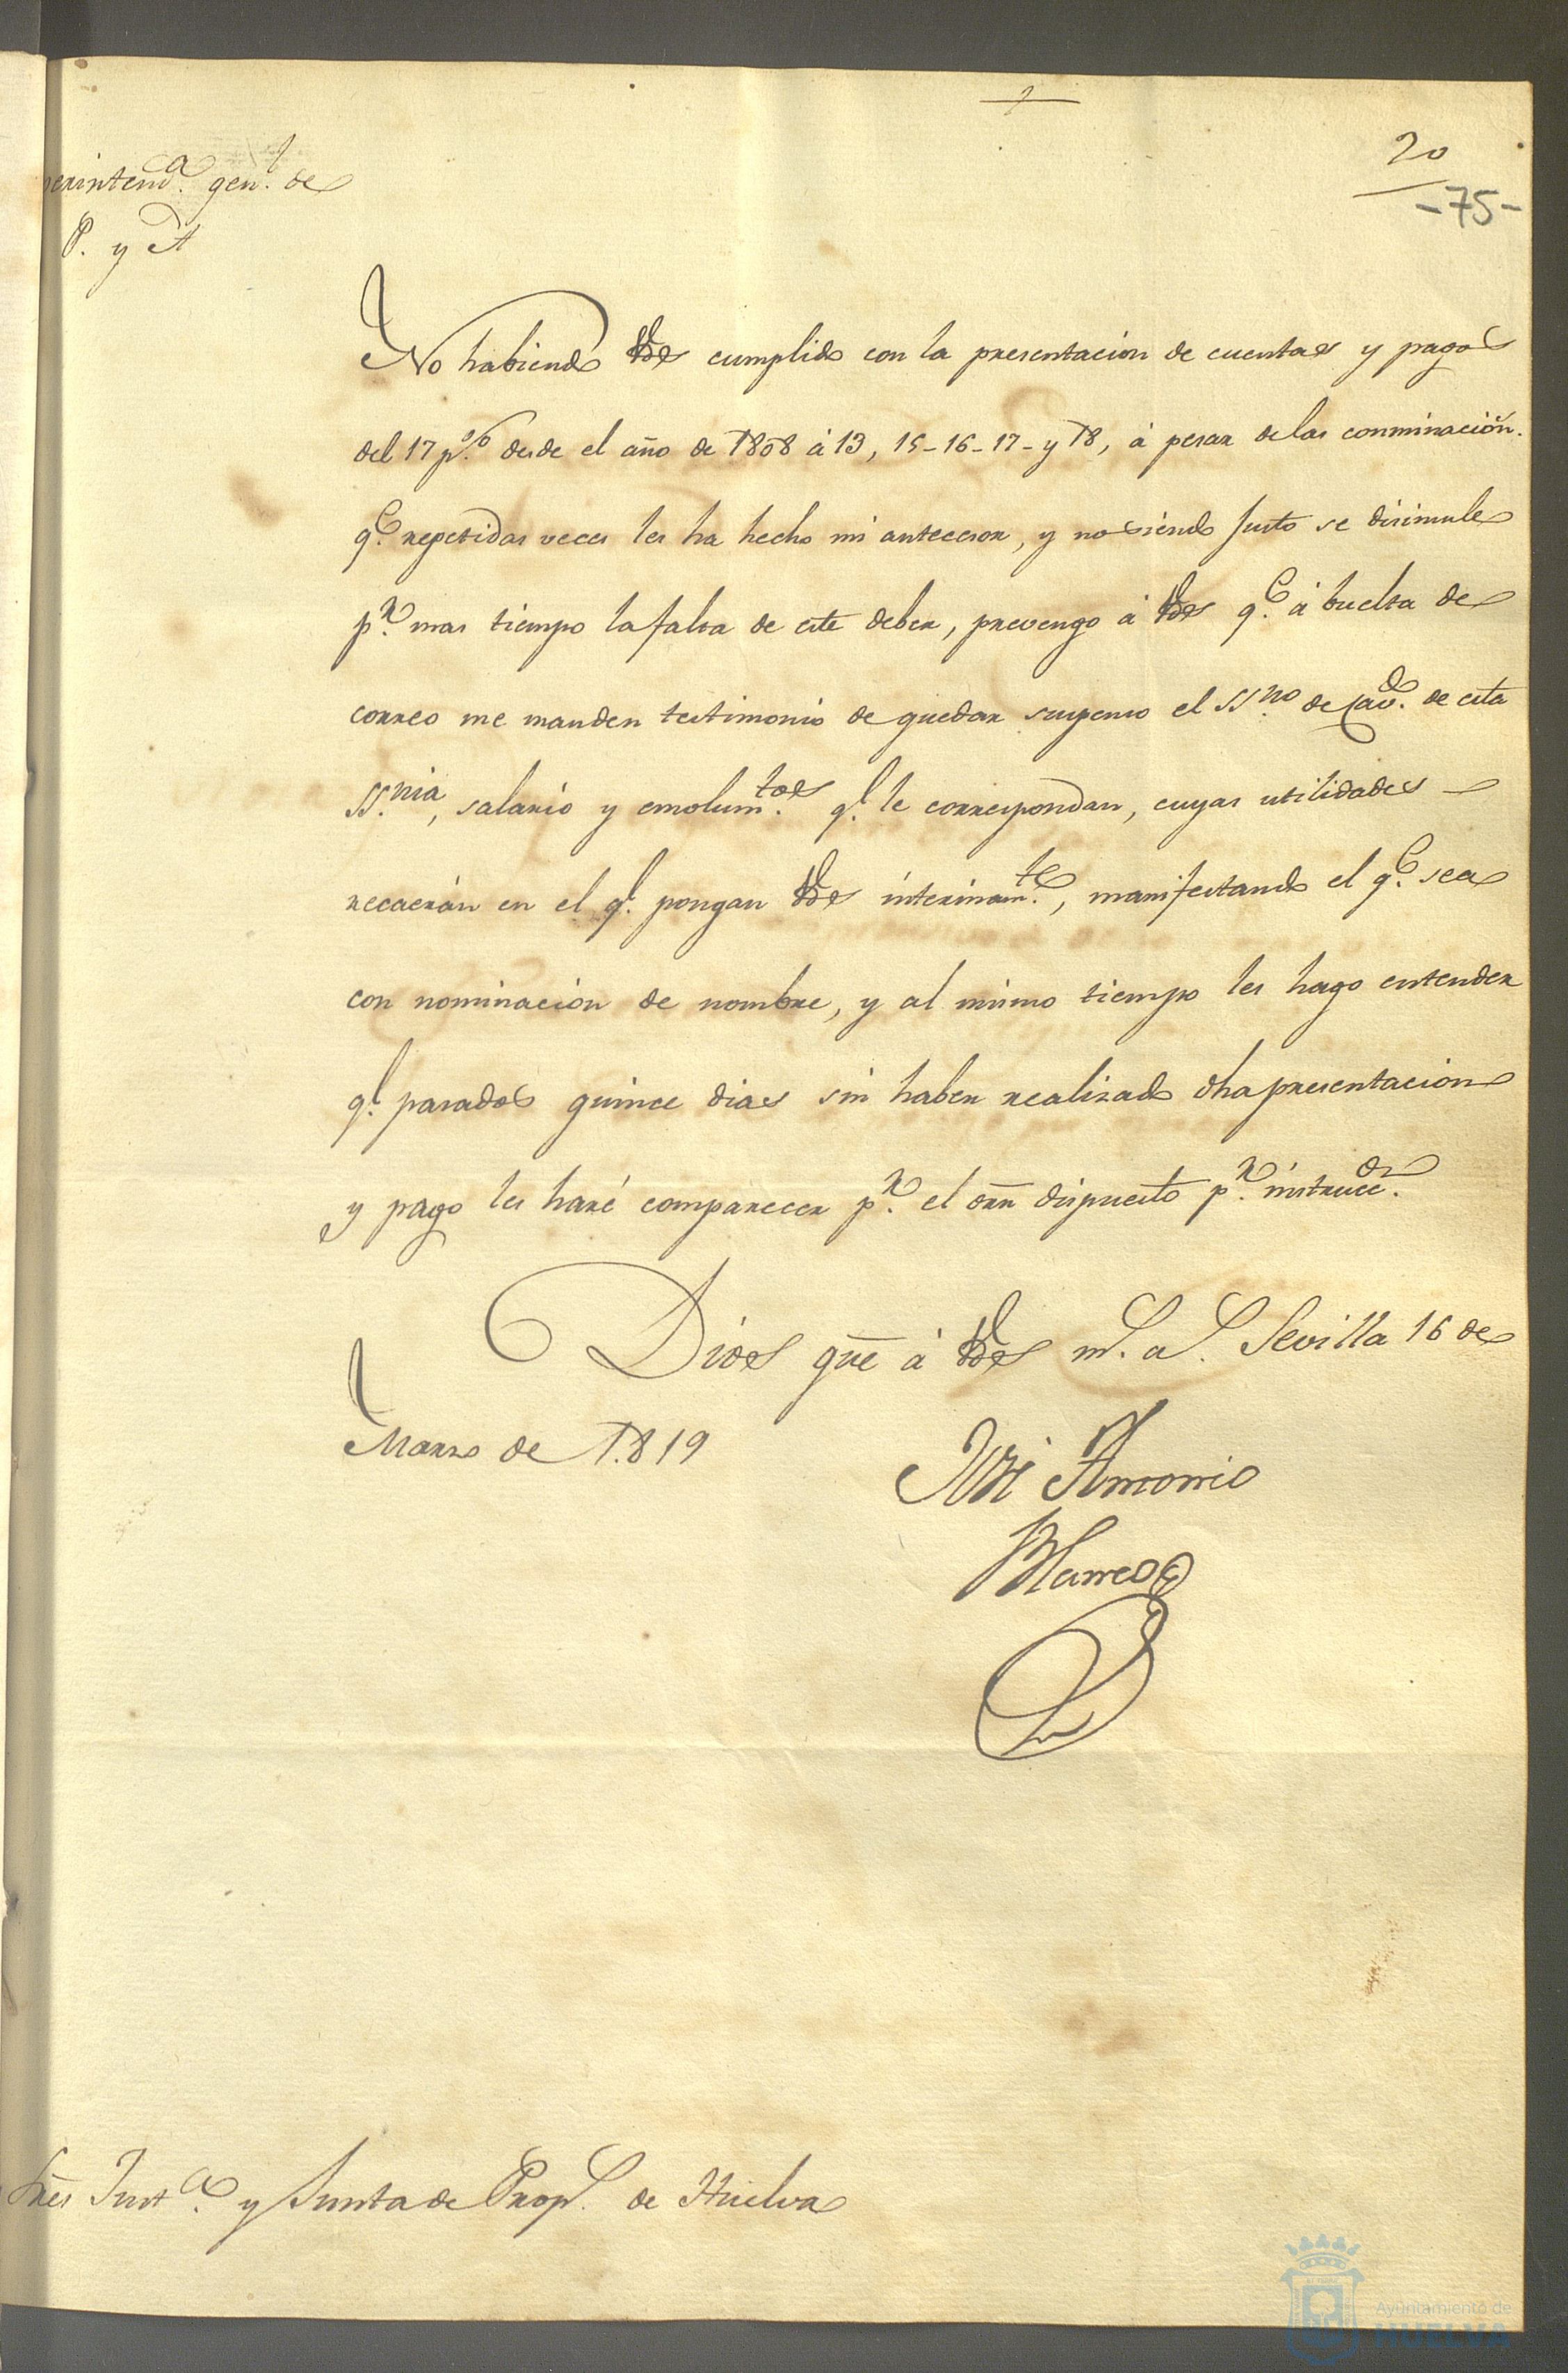 20
-75-
erintend.ª gen.l de
P. y A
No habiendo VVdes cumplido con la presentacion de cuentas y pagos
del 17 p.% desde el año de 1808 á 13, 15-16-17- y 18, á pesar de las conminacion.s
q.e repetidas veces les ha hecho mi antecesor, y no siendo justo se disimule
p.r mas tiempo la falta de este deber, prevengo á VVdes q.e á buelta de
correo me manden testimonio de quedar suspenso el SS.no de Cav.do de esta
SS.nia, salario y emolum.tos q.e le correspondan, cuyas utilidades
recaerán en el q.e pongan VVdes interinam.te, manifestando el q.e sea
con nominacion de nombre, y al mismo tiempo les hago entender
q.e pasados quince dias sin haber realizado dha presentacion
y pago les haré comparecer p.r el orn dispuesto p.r instrucc.on
Dios gue á VVdes m.s a.s Sevilla 16 de
Marzo de 1.819
José Antonio
Blanco
Sres Just.ª y Junta de Prop.s de Huelva
Ayuntamiento de
HUELVA